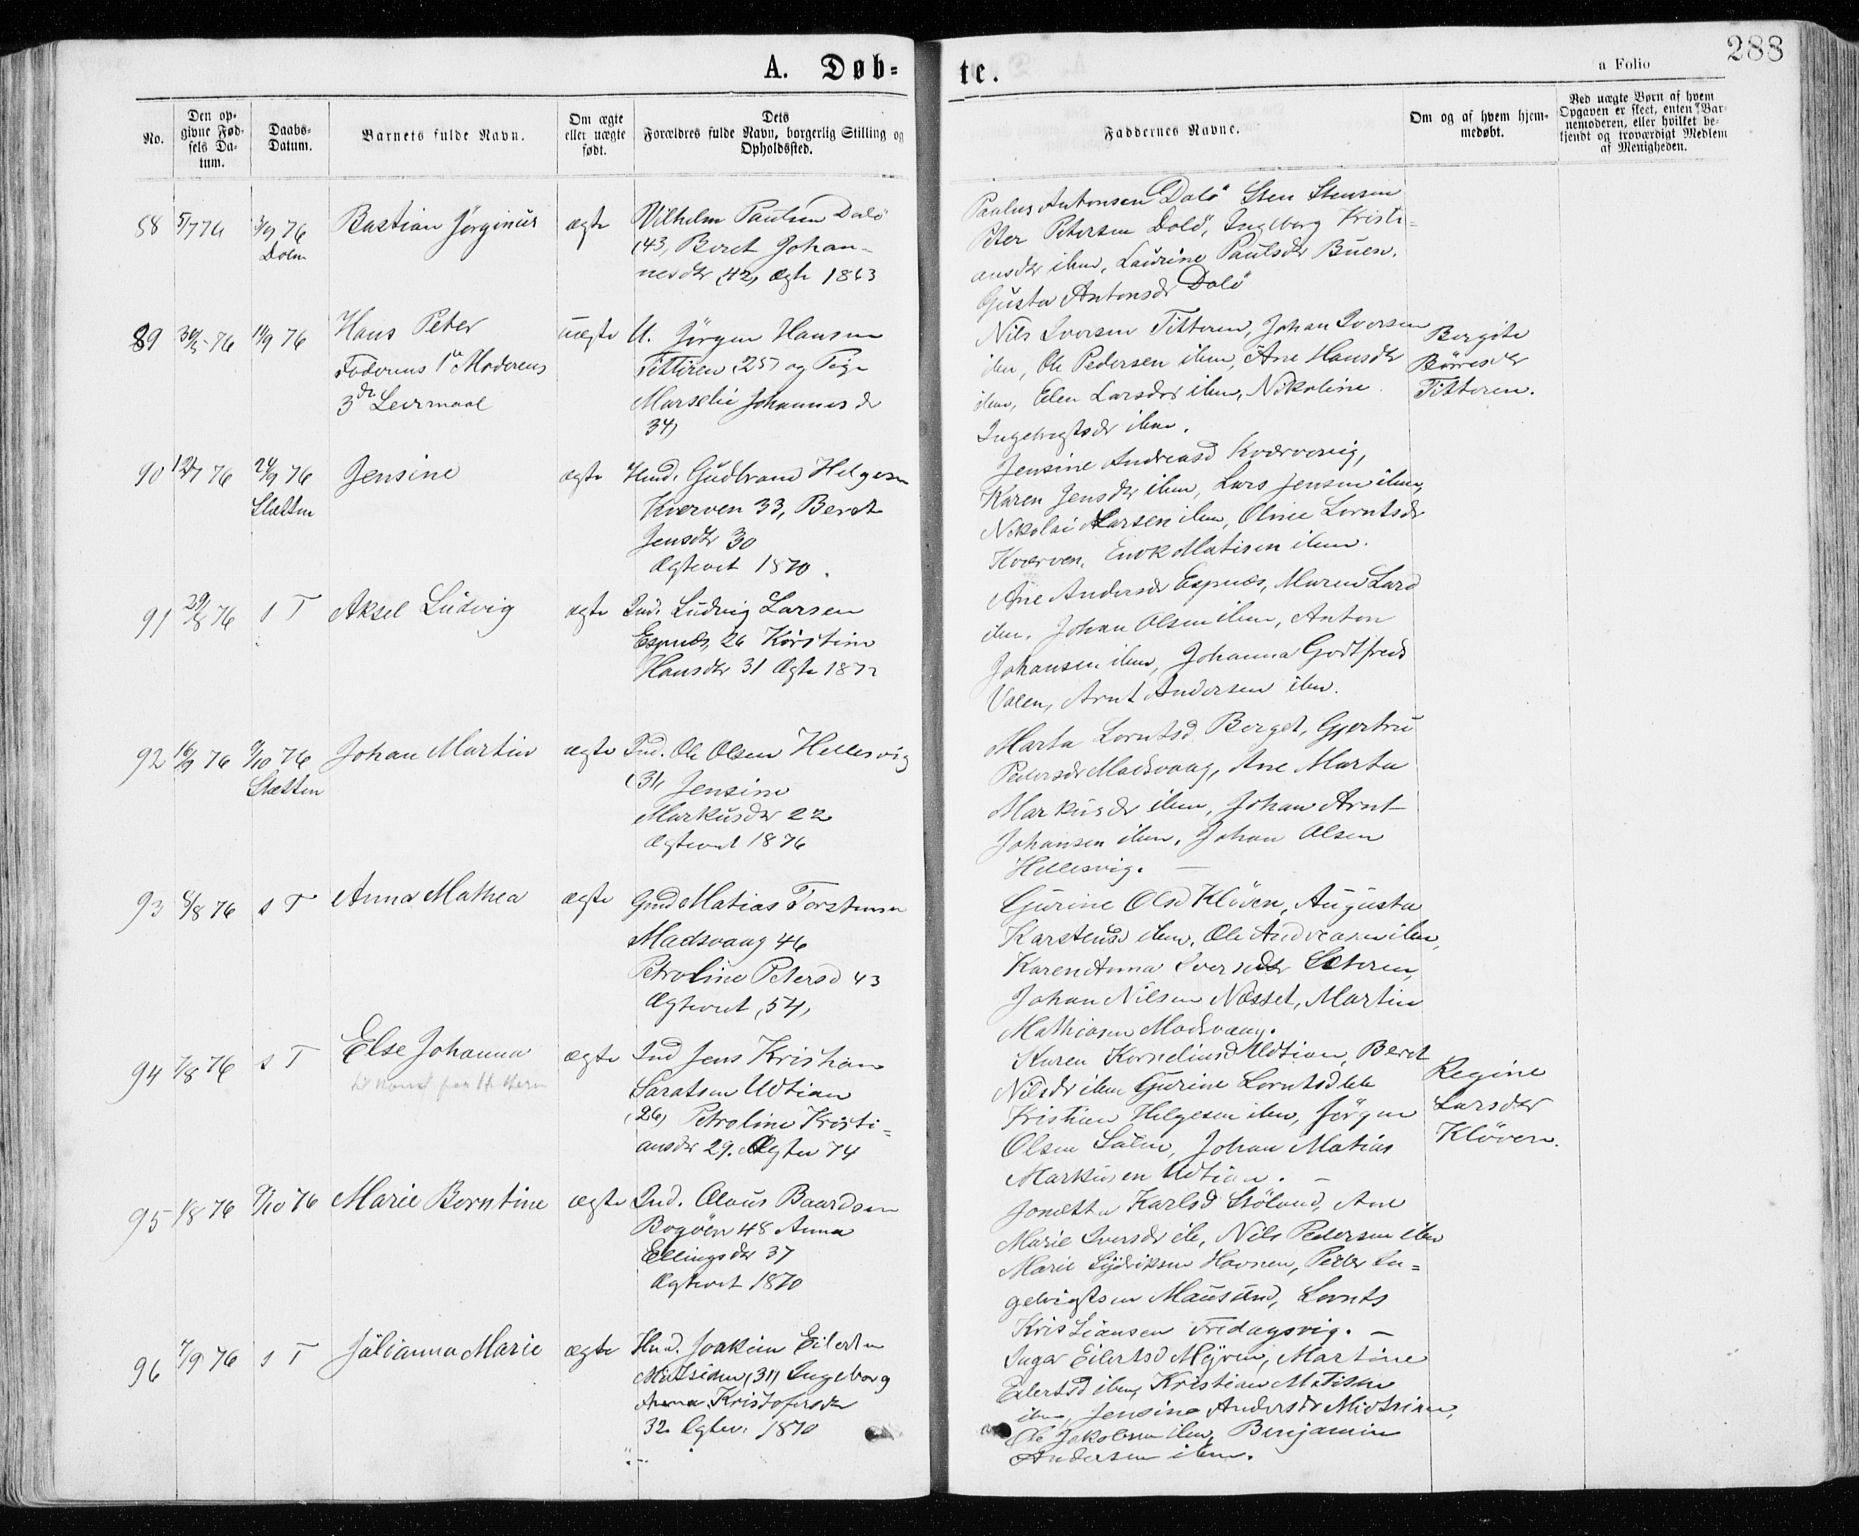 288
A. Døb-
te.
a Folio
No.
Den op-
givne Fød-
sels Da-
tum.
Daabs-
Datum.
Barnets fulde Navn.
Om ægte
eller uægte
født.
Dets
Forældres fulde Navn, borgerlig Stilling og
Opholdssted.
Faddernes Navne.
Om og af hvem hjem-
medøbt.
Ved uægte Børn af hvem
Opgaven er skeet, enten Bar-
nemoderen, eller hvilket be-
kjendt og troværdigt Medlem
af Menigheden.
88 5/7 76 3/9 76 Bastian Jørginus ægte Vilhelm Paulsen Dalö
Dolm
(43, Beret Johan-
nesdtr (42, Ægte 1863
Paulus Antonsen Dalö Sten Stensen
Peter Petersen Dolö, Ingeborg Kristi-
ansdtr ibm, Laurine Paulsdtr Buen.
Gusta Antonsdr Dalö
89 76 76 Hans Peter uægte U. Jörgen Hansen
Faderens 1ste Moderens
3die Leiermaal
Titteren 25) og Pige
Marselie Johannesdr
34)
Nils Iversen Titteren, Johan Iversen
ibm, Ole Pedersen ibm, Ane Hansdtr
ibm, Elen Larsdtr ibm, Nikoline
Ingebrigtsdr ibm.
Bergite
Börresdtr
Titteren.
90 12/7 76 24/9 76 Jensine ægte Hmd. Gudbrand Helgesen
Sletten
Kverven 33, Beret
Jensdtr 30
Ægteviet 1870.
Jensine Andreasd Kværvevig,
Karen Jensdtr ibm, Lars Jensen ibm,
Nikolai Larsen ibm, Oline Lorntsdr
Kværven, Enok Matisen ibm.
91 29/8 76 s T Aksel Ludvig ægte Ind. Ludvig Larsen
Espnæs 26 Kirstine
Hansdtr 31 Ægte 1872
Ane Andersdr Espnæs, Maren Larsd
ibm, Johan Olsen ibm, Anton
Johansen ibm, Johanna Godtfreds
Valen, Arnt Andersen ibm.
92 16/9 76 /10 76 Johan Martin ægte Ind. Ole Olsen Hellesvig
Sletten
(31, Jensine
Markusdtr 22
Ægteviet 1876
Marta Lorntsd Berget, Gjertru
Pedersdr Madsvaag, Ane Marta
Markusdr ibm, Johan Arnt
Johansen ibm, Johan Olsen
Hellesvig. —
93 6/8 76 s T Anna Mathea ægte Gmd Matias Torstensen
Madsvaag 46
Petroline Petersd 43
Ægteviet, 54,
Gurine Olsd Klöven, Augusta
Karstensd ibm, Ole Andreasen ibm,
Karen Anna Iversdtr Sæteren,
Johan Nilsen Næsset, Martin
Mathiasen Madsvaag.
94 7/8 76 s T Else Johanna ægte Ind Jens Kristian
Saratsen Udtian
(26) Petroline Kristi-
ansdr 29. Ægtev 74
Karen Kornelius Udtian, Beret
Nilsdr ibm Gurine Lorntsd
Kristian Helgesen ibm, Jörgen
Olsen, Johan Matias
Markusen Udtian. —
Regine
Larsdtr
Klöven.
95 1/8 76 /10 76 Marie Berntine ægte Ind. Olaus Baardsen
Bogöen 48 Anna
Ellingsdtr 37
Ægteviet 1870
Jonetta Karlsd Stöland, Ane
Marie Iversdr ib, Nils Pedersen ibm
Marie Havnen, Peder In-
gebrigtsen Mausund, Lornts
Kristiansen Fredagsvig. —
96 7/9 76 s T Julianna Marie ægte Hmd. Joakim Eilertsen
(31) Ingeborg
Anna Kristofersdtr
32 Ægtev. 1870
Inger Eilertsd Myren, Martine
Eilertsd ibm, Kristian Matisen
ibm, Jensine Andersdr
Ole Jakobsen ibm, Benjamin
Andersen ibm.